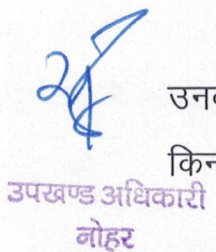 उनव
किन
उपखण्ड अधिकारी
नोहर